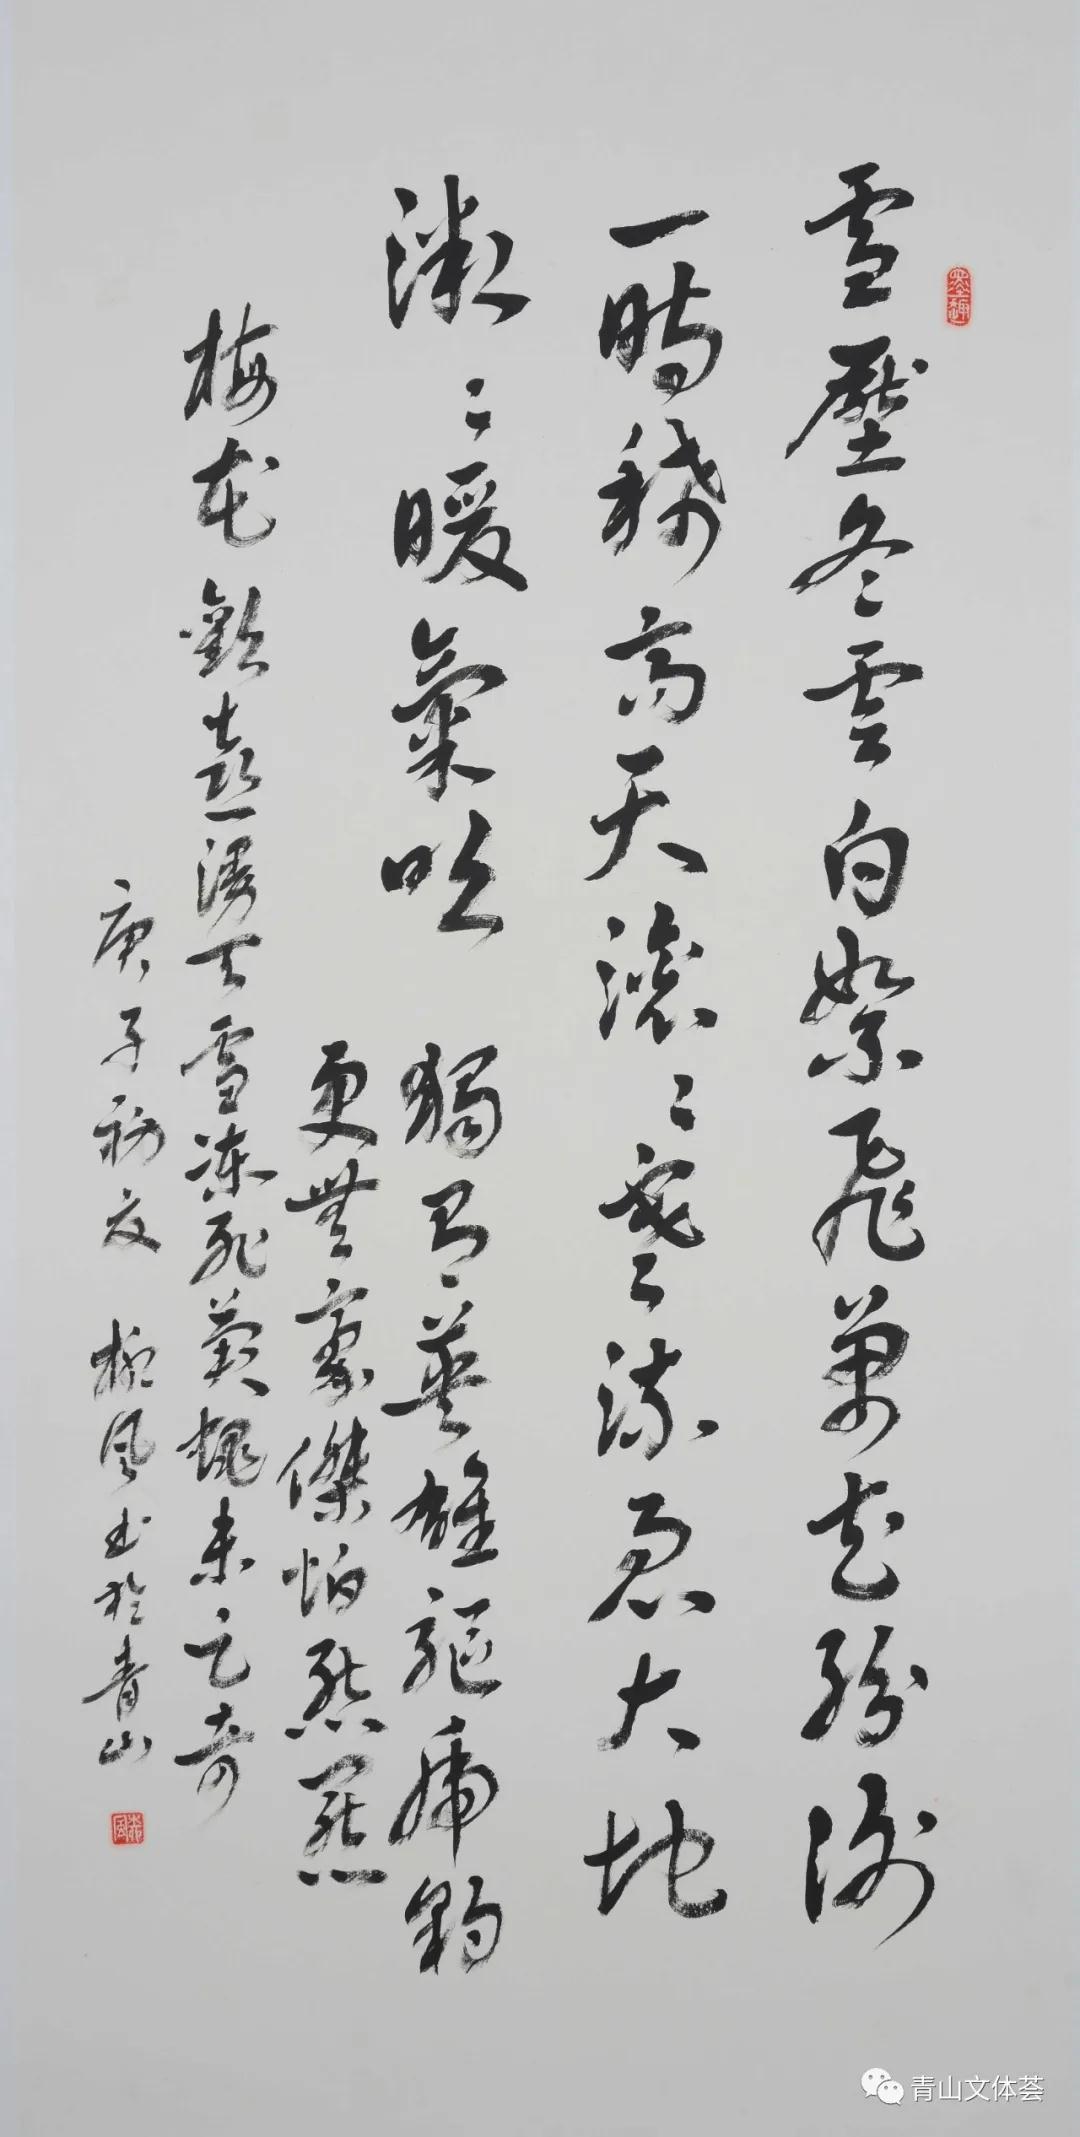 雪壓冬雲白絮飛萬花紛謝
一時稀高天滾〻寒流急大地
微〻暖氣吹 獨有英雄驅虎豹
更無豪傑怕熊羆
梅花歡喜漫天雪凍死蒼蠅未足奇
庚子初夏 柳風書於青山
青山文体荟